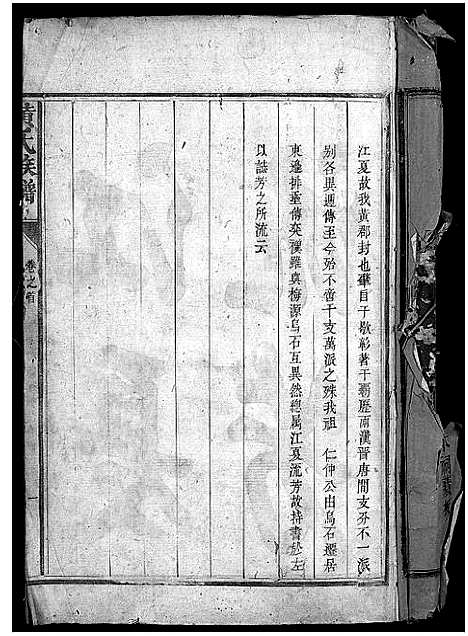 江夏故我黃郡封也肇自于敬彰著于霸歷兩漢晉唐間支分不一派
別各異遞傳至今殆不啻千支萬派之殊我祖　仁仲公由烏石遷居
東邊排並傳奕禩雖與梅源烏石互異然總屬江夏流芳故特書於左
以誌芳之所流云
黃氏族譜
卷之首
一